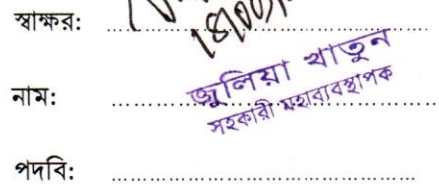 স্বাক্ষর: ..............................
নাম: ..............................
জুলিয়া খাতুন
সহকারী মহাব্যবস্থাপক
পদবি: ..............................